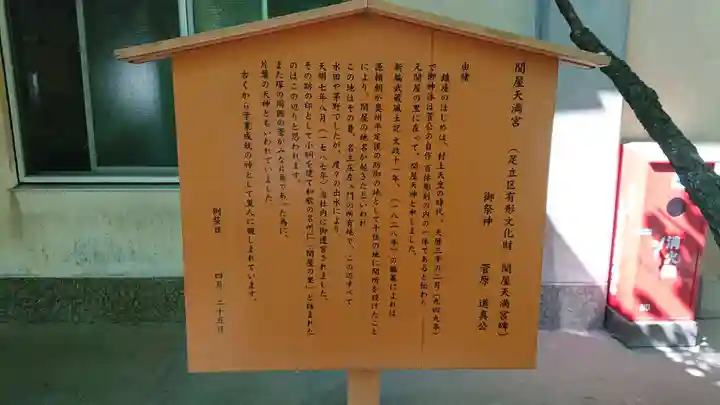 関屋天満宮 (足立区有形文化財 関屋天満宮碑)
御祭神 菅原 道真公
由緒
鎮座のはじめは、村上天皇の時代、天暦三年の二月(九四九年)
で御神体は菅公の自作 百体彫刻の内の一体であると伝わり
元関屋の里に在って、関屋天神と申しました。
新編武蔵風土記 文政十一年、(一八二八年)の編纂によれば
源頼朝が奥州平定後の防御の地として千住の地に関所を設けたこと
により、関屋の地名が起きたといわれ
この地はその昔、名主左右ヱ門の所有地で、この辺すべて
水田や茅野でしたが、度々の出水により
天明七年八月(一七八七年)当社内に御遷宮されました。
その跡の印として小祠を建て和歌の名所に「関屋の里」と詠まれた
のはこの辺りと思われます。
また塚の周囲の葦がみな片葉であった為に、
片葉の天神ともいわれていました
古くから学業成就の神として里人に親しまれています。
例祭日 四月 二十五日
消火